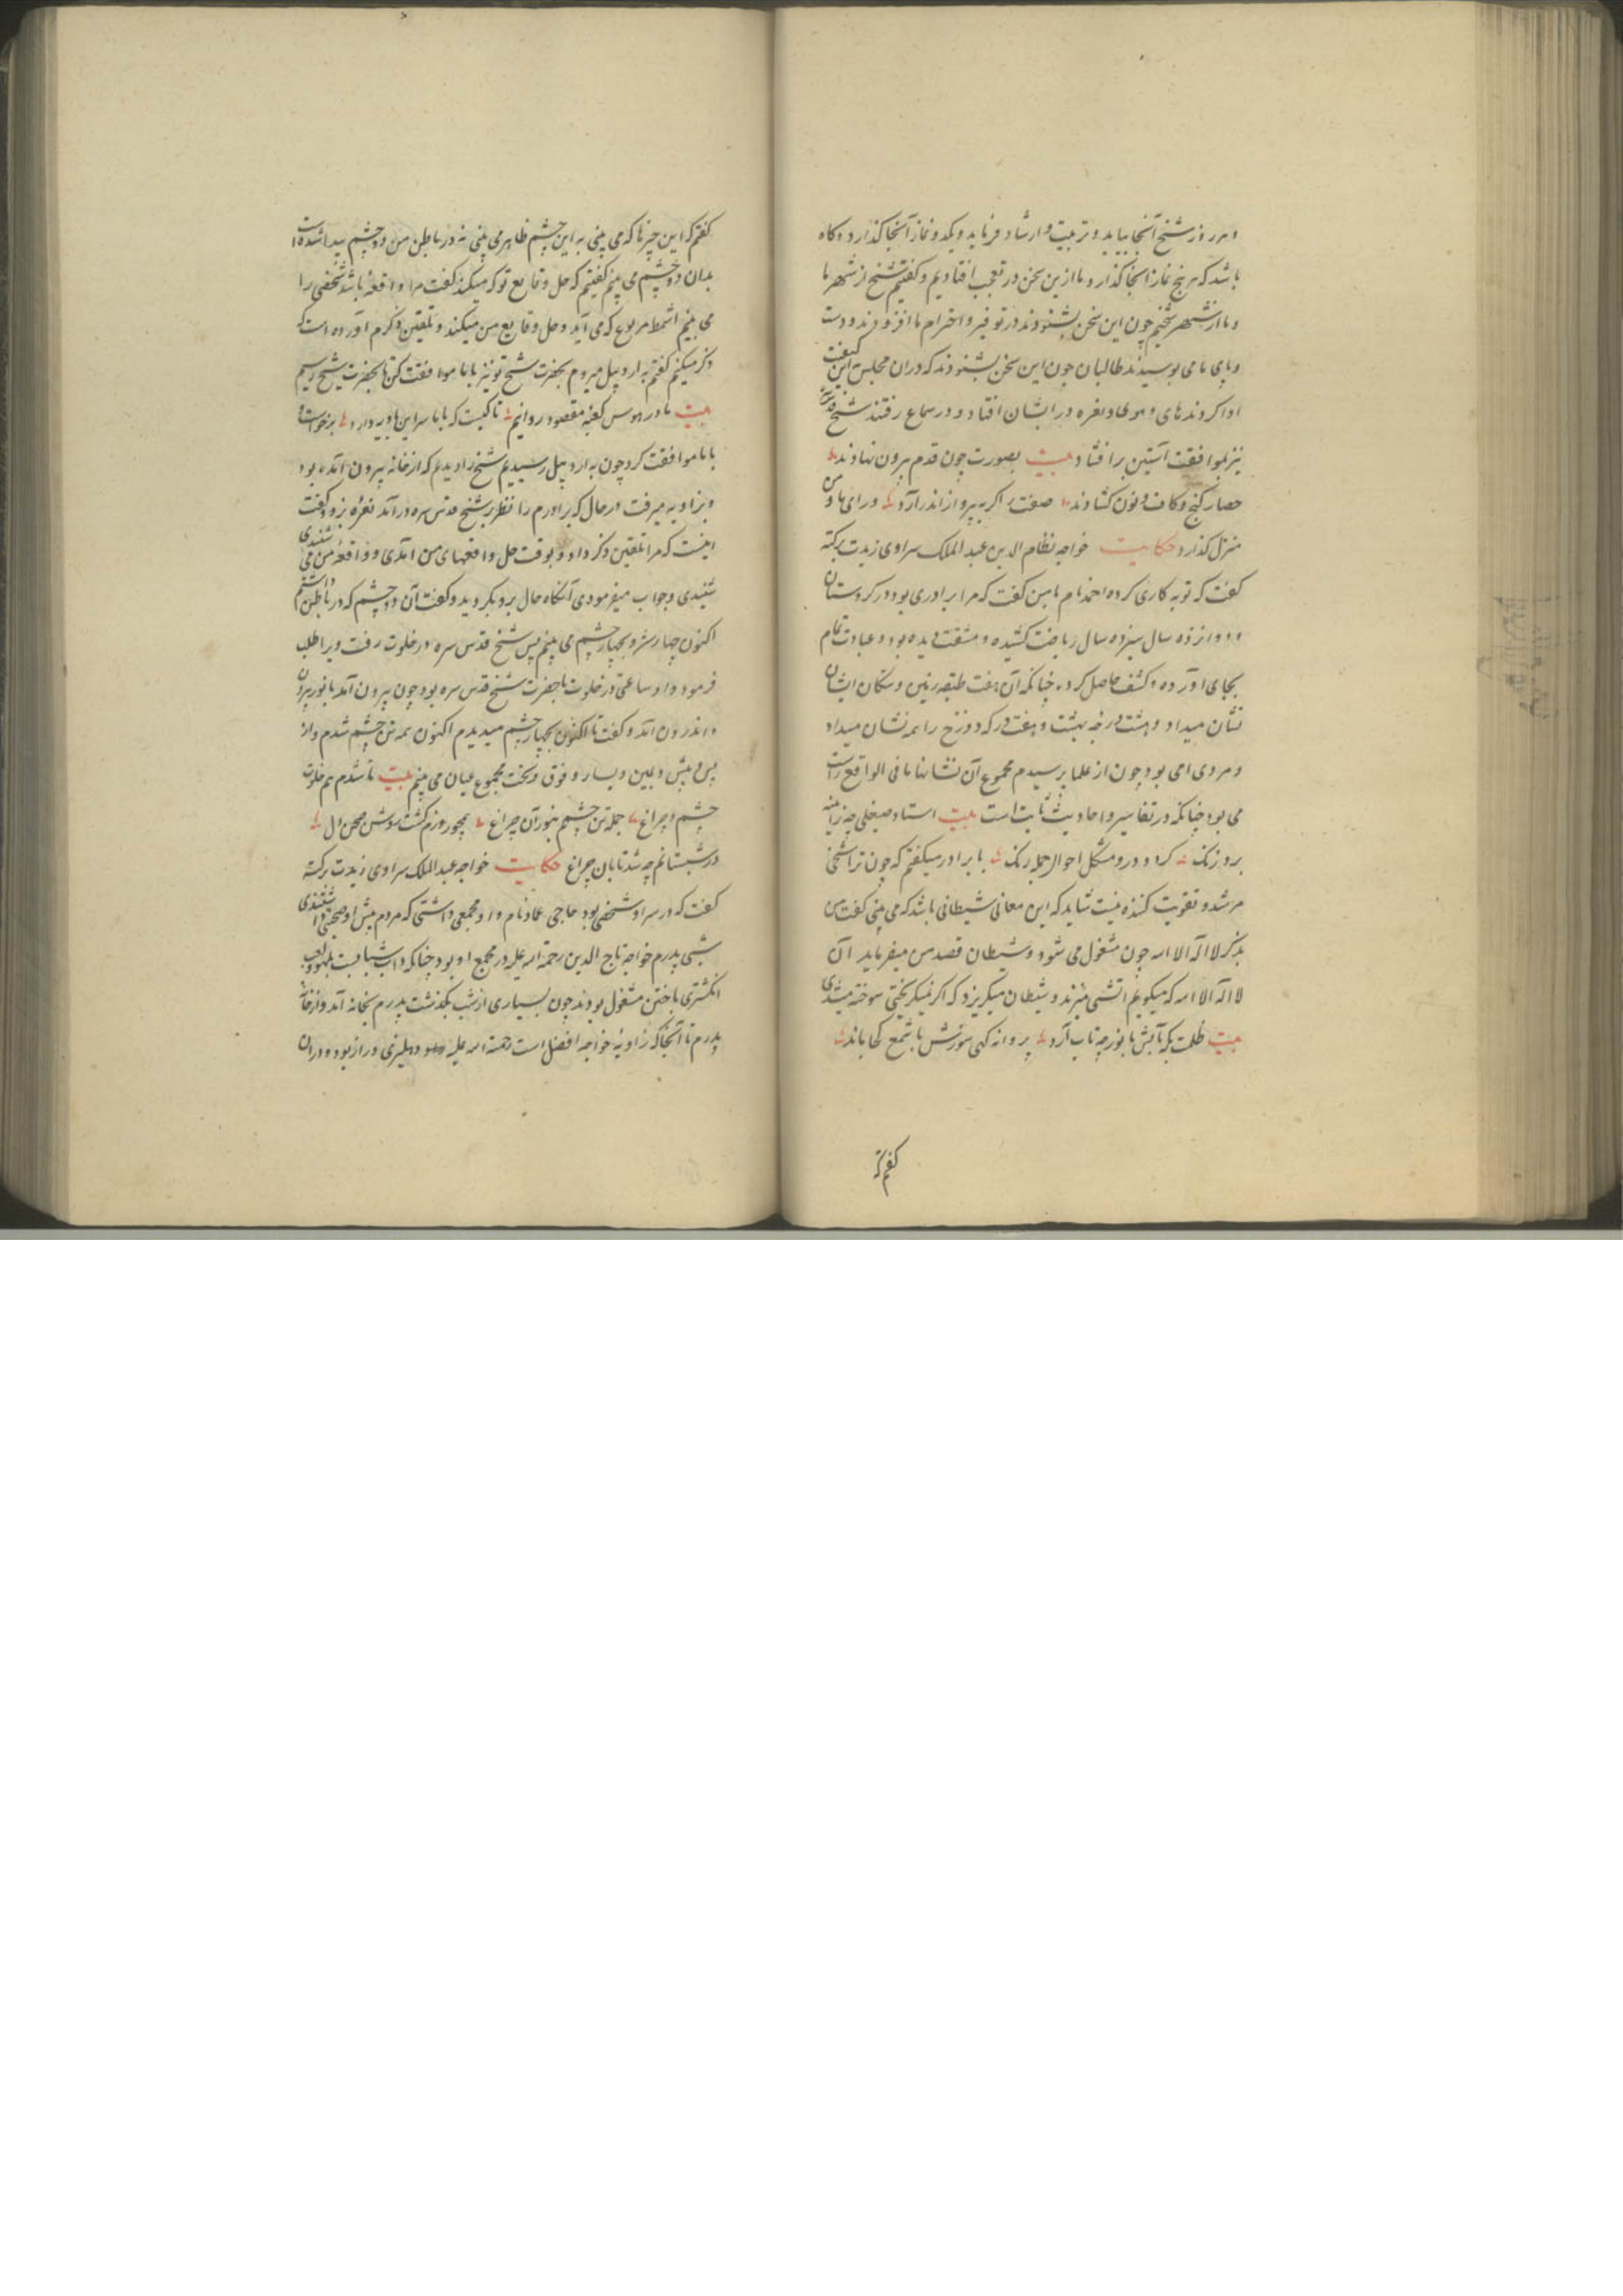 و هر روز شیخ آنجا بیاید و تربیت و ارشاد فرماید و یک دو نماز آنجا گذارد و گاه
باشد که هر پنج نماز آنجا گذارد ما ازین سخن در تعجب افتادیم و گفتیم شیخ از شهر ما
و ما از شهر شیخیم چون این سخن بشنودند در توقیر و احترام ما افزودند و دست
و پای ما می بوسیدند طالبان چون این سخن بشنودند که در ان مجلس این کیفیت
ادا کردند های و هوی و نعره در ایشان افتاد و در سماع رفتند شیخ قدس سره
نیز بموافقت آستین برافشاند بیت بصورت چون قدم بیرون نهادند
حصار کنج و کاف و نون گشادند صفت را گر به پرواز اندر آرد ورای ما و من
منزل گذارد حکایت خواجه نظام الدین عبد الملک سراوی زیدت برکته
گفت که توبه کاری کرده احمد نام با من گفت که مرا برادری بود در کردستان
دوازده سال سیزده سال ریاضت کشیده و مشقت دیده بود و عبادت تمام
بجای آورده و کشف حاصل کرده چنانکه آن هفت طبقه زمین و سکان ایشان
نشان میداد و هشت درجه بهشت و هفت درکه دوزخ را همه نشان میداد
و مردی امی بود چون از علما پرسیدم مجموع آن نشانها ما فی الواقع راست
می بود چنانکه در تفاسیر و احادیث ثابت است بیت استاد صیقلی چه ز آینه
برد زنک کردد درو مشکل احوال جمله رنک با برادر میگفتم که چون ترا شیخی
مرشد و تقویت کننده نیست شاید که این معانی شیطانی باشد که می بینی گفت من
بذکر لا اله الا الله چون مشغول می شود و شیطان قصد من میفرماید آن
لا اله الا الله که میگویم آتشی میزند و شیطان میگریزد که اگر نمیگریختی سوخته میشدی
بیت ظلمت بکه تابش با نور چه تاب آرد پروانه کهی سوزش با شمع کجا ماند
گفتم که
گفتم که این چیزها که می بینی به این چشم ظاهر می بینی نه در باطن من دو چشم پیدا شده است
بدان دو چشم می بینم گفتیم که حل وقایع تو که میکند گفت مرا واقعهٔ باشد شخصی را
می بینم اشمط مربوع که می آید و حل وقایع من میکند و تلقین ذکرم آورده است که
ذکر میکنم گفتم به اردبیل میروم بحضرت شیخ تو نیز با ما موافقت کن تا بحضرت شیخ رسیم
بیت ما در هوس کعبه مقصود روانیم تا کیست که با ما سر این بادیه دارد برخواست و
با ما موافقت کرد چون به اردبیل رسیدیم شیخ را دیدم که از خانه بیرون آمده بود
و بزاویه میرفت در حال که برادرم را نظر بر شیخ قدس سره در آمد نعره بزد و گفت
اینست که مرا تلقین ذکر داد و بوقت حل واقعهای من آمدی و واقعهٔ من می شنیدی
شنیدی و جواب میفرمودی آنگاه حال برو بگردید و گفت آن دو چشم که در باطن داشتم
اکنون چهار شد و بچهار چشم می بینم پس شیخ قدس سره در خلوت رفت و برا طلب
فرمود و او ساعتی در خلوت با حضرت شیخ قدس سره بود چون بیرون آمد با نور بیرون
و اندرون آمد و گفت تا اکنون بچهار چشم میدیدم اکنون همه تن چشم شدم و از
پس و پیش و یمین و یسار و فوق و تحت مجموع عیان می بینم بیت تا شدم هم خلوت
چشم و چراغ جمله تن چشمم بنور آن چراغ همچو روزم گشت روشن صحن دل
در شبستانم چه شد تابان چراغ حکایت خواجه عبد الملک سراوی زیدت برکته
گفت که در سراو شخصی بود حاجی عماد نام و او مجمعی داشتی که مردم پیش او صحبت داشتندی
شبی پدرم خواجه تاج الدین رحمة الله علیه در مجمع او بود چنانکه داب شبها بست بلهو و لعب
انگشتری باختن مشغول بودند چون بسیاری از شب بگذشت پدرم بخانه آمد و از خانهٔ
پدرم تا آنجا که زاویهٔ خواجه افضل است رحمة الله علیه دهلیزی دراز بود و در ان